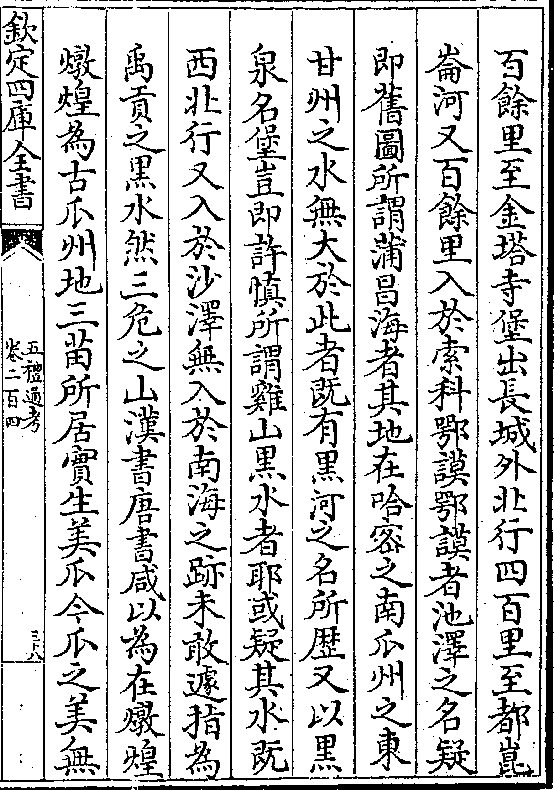 百餘里至金塔寺堡出長城外北行四百里至都崑
崙河又百餘里入於索科鄂謨鄂謨者池澤之名疑
即舊圖所謂蒲昌海者其地在哈密之南瓜州之東
甘州之水無大於此者既有黑河之名所歴又以黑
泉名堡豈即許慎所謂雞山黑水者耶或疑其水既
西北行又入於沙澤無入於南海之跡未敢遽指為
禹貢之黒水然三危之山漢書唐書咸以為在燉煌
燉煌為古瓜州地三苗所居實生美瓜今瓜之美無
欽定四庫全書
五禮通考
卷二百四
三十八